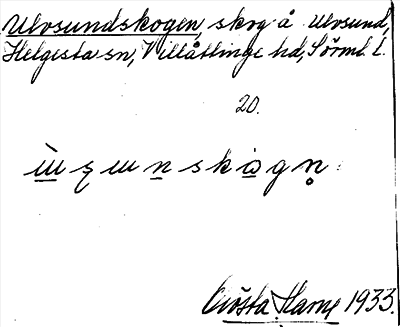 Ulvsundskogen, skog å Ulvsund,
Helgesta sn, Villåttinge hd, Sörml. l.
20.
Gösta Harne 1933.